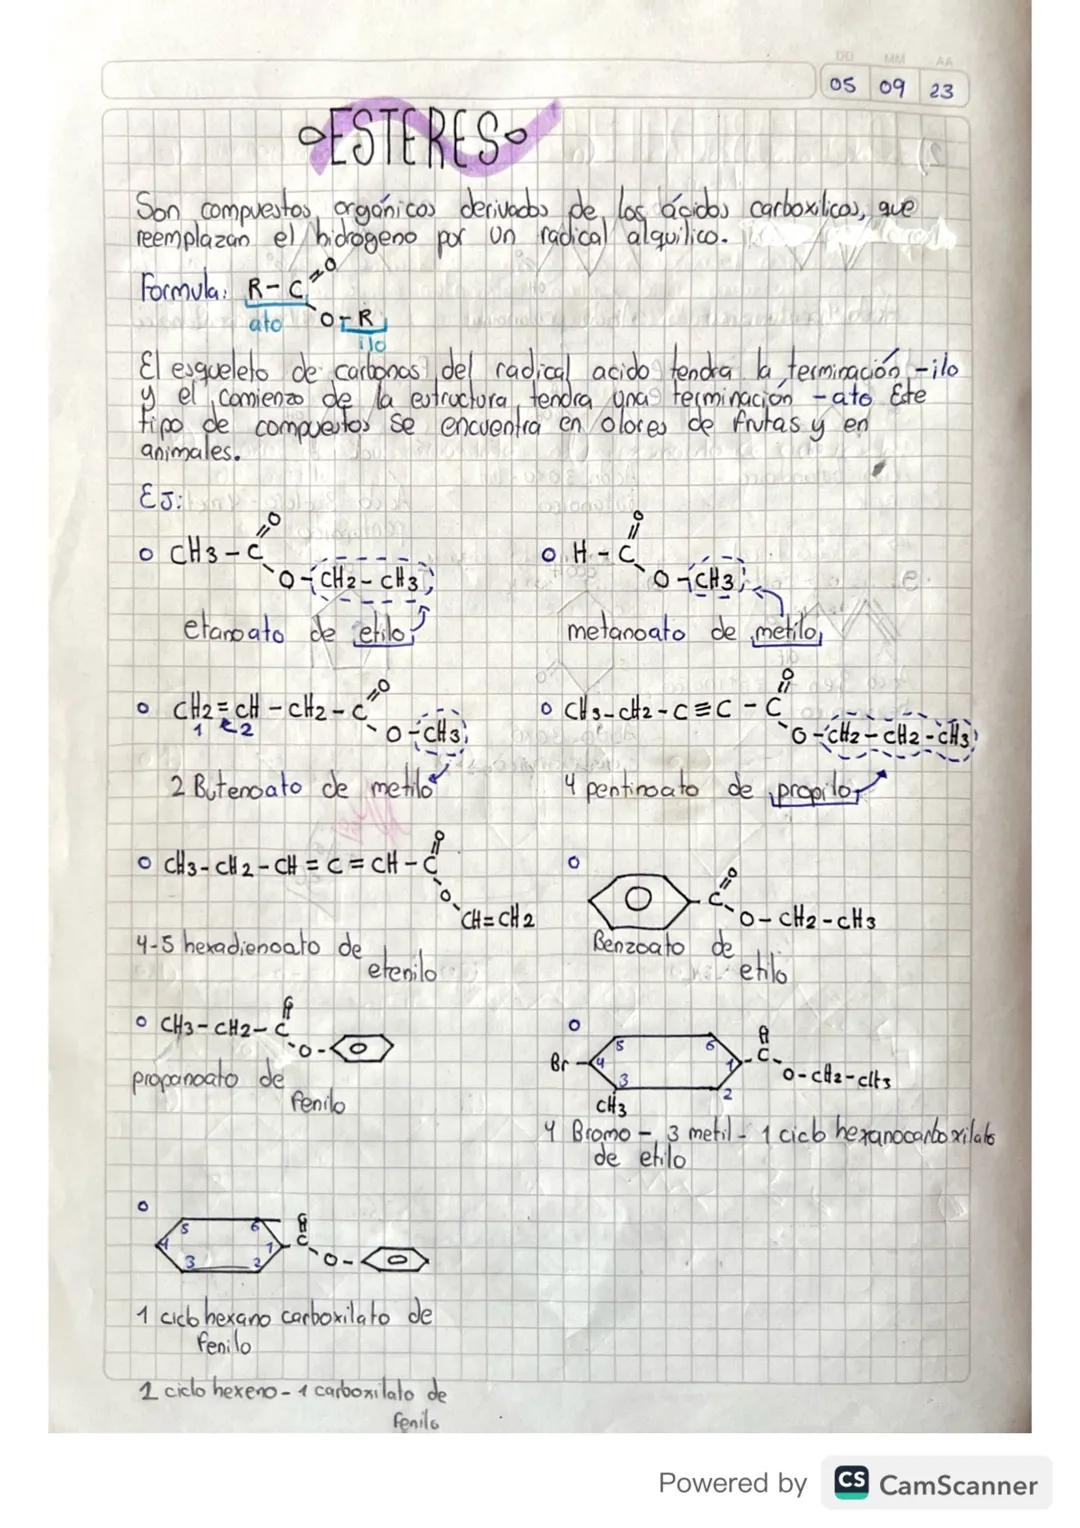 DD MM AA
05 09 23
ESTERES
Son compuestos orgánicos derivados de los ácidos carboxilicos, que
reemplazan el hidrogeno por un radical alquilico.
Formula: R-C
=O
O-R
ato
ilo
El esqueleto de carbonos del radical acido tendra la terminación -ilo
y el comienzo de la estructura tendra una terminación -ato Este
tipo de compuestos se encuentra en olores de frutas y en
animales.
EJ:
CH3-C
=O
O-CH2-CH3
etanoato de etilo
H-C
=O
O-CH3
metanoato de metilo
CH2=CH-CH2-C
=O
O-CH3
1 2
2 Butenoato de metilo
CH3-CH2-C≡C-C
=O
O-CH2-CH2-CH3
4 pentinoato de propilo
CH3-CH2-CH=C=CH-C
=O
O
CH=CH2
4-5 hexadienoato de
etenilo
C
=O
O-CH2-CH3
Benzoato de
etilo
CH3-CH2-C
=O
O-
propanoato de
fenilo
Br
5 6
4 1
3 2
CH3
C
=O
O-CH2-CH3
4 Bromo - 3 metil - 1 ciclo hexanocarboxilato
de etilo
5 6
4 1
3 2
C
=O
O-
1 ciclo hexano carboxilato de
fenilo
2 ciclo hexeno - 1 carboxilato de
fenilo
Powered by CS CamScanner